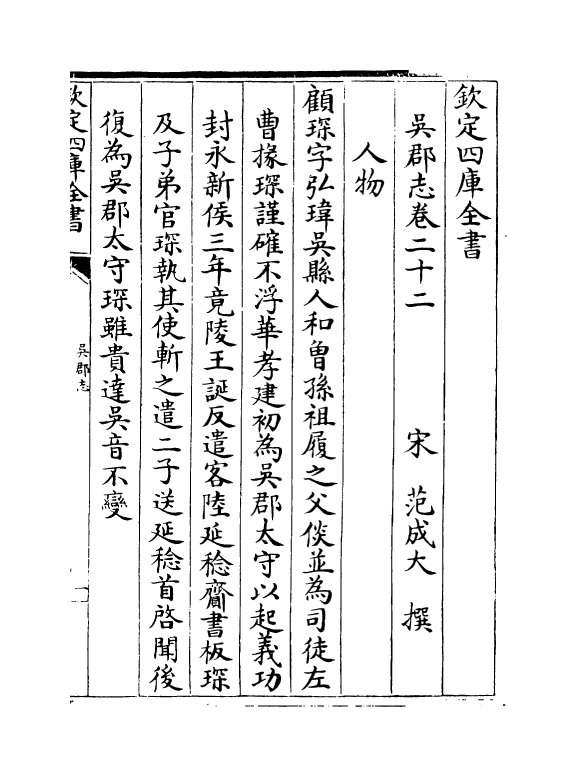 欽定四庫全書
吳郡志卷二十二　宋　范成大　撰
人物
顧琛字弘瑋吳縣人和曾孫祖履之父惔並為司徒左
曹掾琛謹確不浮華孝建初為吳郡太守以起義功
封永新侯三年竟陵王誕反遣客陸延稔齎書板琛
及子弟官琛執其使斬之遣二子送延稔首啓聞後
復為吳郡太守琛雖貴達吳音不變
欽定四庫全書
吳郡志
一